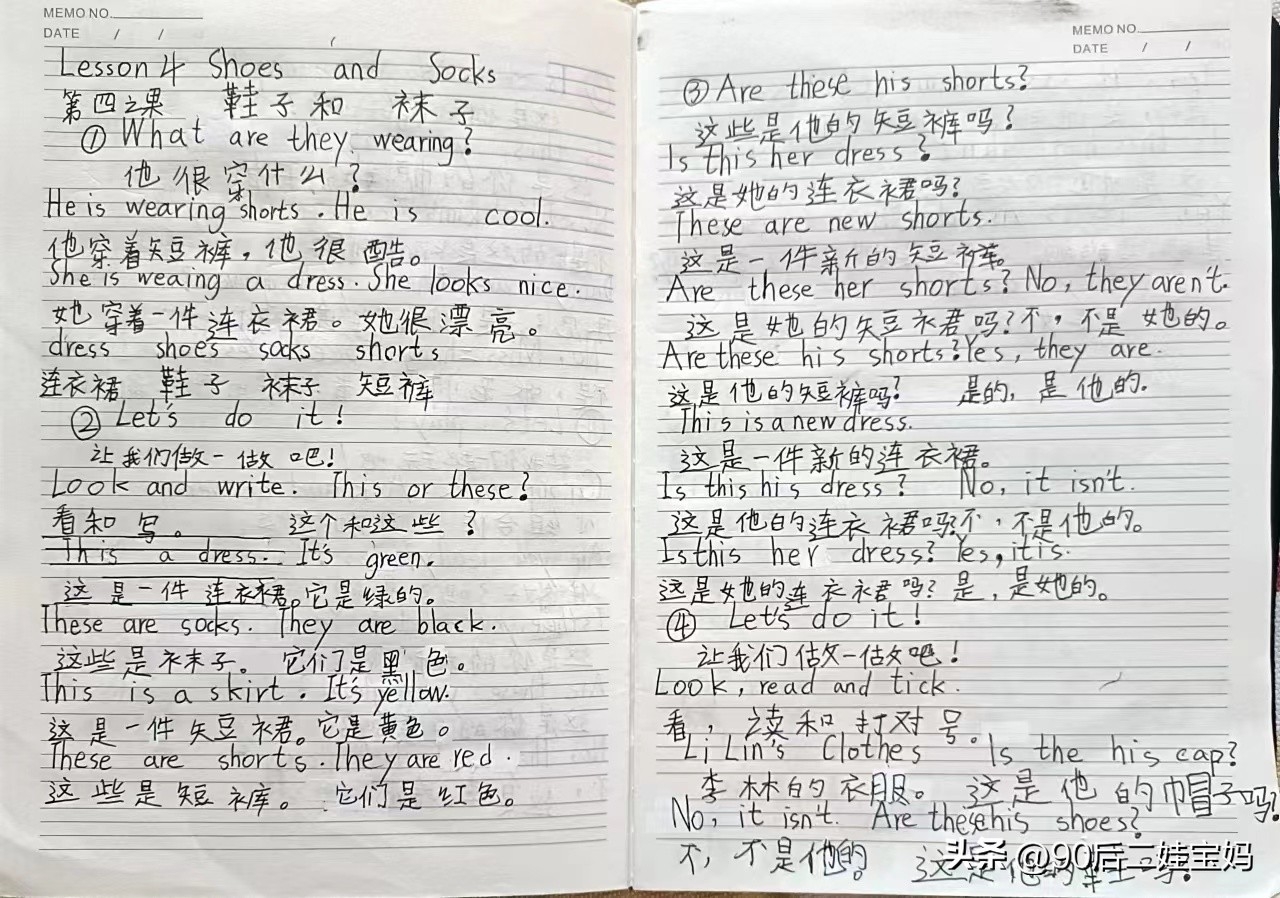 MEMO NO.
DATE / /
Lesson 4 Shoes and Socks
第四课 鞋子和 袜子
① What are they wearing?
他很穿什么?
He is wearing shorts. He is cool.
他穿着短裤,他很酷。
She is weaing a dress. She looks nice.
她穿着一件连衣裙。她很漂亮。
dress shoes socks shorts
连衣裙 鞋子 袜子 短裤
② Let's do it!
让我们做一做吧!
Look and write. This or these?
看和写。 这个和这些?
This a dress. It's green.
这是一件连衣裙。它是绿的。
These are socks. They are black.
这些是袜子。 它们是黑色。
This is a skirt. It's yellow.
这是一件短裙。它是黄色。
These are shorts. They are red.
这些是短裤。 它们是红色。
MEMO NO.
DATE / /
③ Are these his shorts?
这些是他的短裤吗?
Is this her dress?
这是她的连衣裙吗?
These are new shorts.
这是一件新的短裤。
Are these her shorts? No, they aren't.
这是她的短裙吗?不,不是她的。
Are these his shorts? Yes, they are.
这是他的短裤吗? 是的,是他的.
This is a new dress.
这是一件新的连衣裙。
Is this his dress? No, it isn't.
这是他的连衣裙吗?不,不是他的。
Is this her dress? Yes, it is.
这是她的连衣裙吗?是,是她的。
④ Let's do it!
让我们做一做吧!
Look, read and tick.
看,读和打对号。
Li Lin's Clothes Is the his cap?
李林的衣服。 这是他的帽子吗?
No, it isn't. Are these his shoes?
不,不是他的。 这是他的鞋吗?
头条 @90后二娃宝妈